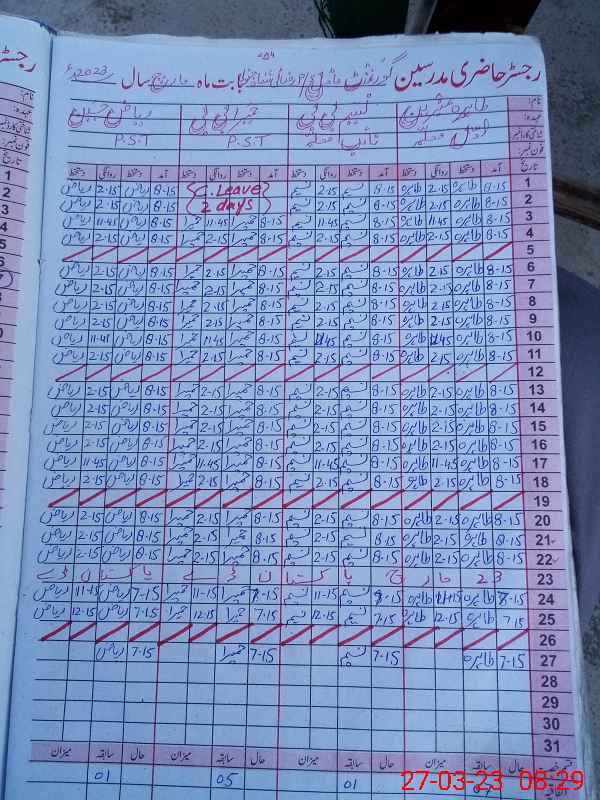 رجسٹر حاضری مدرسین گورنمنٹ بابت ماہ مارچ سال 2023ء
نام: طاہرہ نسیم بی بی حمیرا بی بی ریاض
عہدہ: اول معلمہ نائب معلمہ P.S.T P.S.T
شناختی کارڈ نمبر
فون نمبر:
تاریخ آمد دستخط روانگی دستخط آمد دستخط روانگی دستخط آمد دستخط روانگی دستخط آمد دستخط روانگی دستخط
1 8-15 طاہرہ 2-15 طاہرہ 8-15 نسیم 2-15 نسیم C. Leave 8-15 ریاض 2-15 ریاض
2 8-15 طاہرہ 2-15 طاہرہ 8-15 نسیم 2-15 نسیم 2 days 8-15 ریاض 2-15 ریاض
3 8-15 طاہرہ 11-45 طاہرہ 8-15 نسیم 11-45 نسیم 8-15 حمیرا 11-45 حمیرا 8-15 ریاض 11-45 ریاض
4 8-15 طاہرہ 2-15 طاہرہ 8-15 نسیم 2-15 نسیم 8-15 حمیرا 2-15 حمیرا 8-15 ریاض 2-15 ریاض
5
6 8-15 طاہرہ 2-15 طاہرہ 8-15 نسیم 2-15 نسیم 8-15 حمیرا 2-15 حمیرا 8-15 ریاض 2-15 ریاض
7 8-15 طاہرہ 2-15 طاہرہ 8-15 نسیم 2-15 نسیم 8-15 حمیرا 2-15 حمیرا 8-15 ریاض 2-15 ریاض
8 8-15 طاہرہ 2-15 طاہرہ 8-15 نسیم 2-15 نسیم 8-15 حمیرا 2-15 حمیرا 8-15 ریاض 2-15 ریاض
9 8-15 طاہرہ 2-15 طاہرہ 8-15 نسیم 2-15 نسیم 8-15 حمیرا 2-15 حمیرا 8-15 ریاض 2-15 ریاض
10 8-15 طاہرہ 11-45 طاہرہ 8-15 نسیم 11-45 نسیم 8-15 حمیرا 11-45 حمیرا 8-15 ریاض 11-45 ریاض
11 8-15 طاہرہ 2-15 طاہرہ 8-15 نسیم 2-15 نسیم 8-15 حمیرا 2-15 حمیرا 8-15 ریاض 2-15 ریاض
12
13 8-15 طاہرہ 2-15 طاہرہ 8-15 نسیم 2-15 نسیم 8-15 حمیرا 2-15 حمیرا 8-15 ریاض 2-15 ریاض
14 8-15 طاہرہ 2-15 طاہرہ 8-15 نسیم 2-15 نسیم 8-15 حمیرا 2-15 حمیرا 8-15 ریاض 2-15 ریاض
15 8-15 طاہرہ 2-15 طاہرہ 8-15 نسیم 2-15 نسیم 8-15 حمیرا 2-15 حمیرا 8-15 ریاض 2-15 ریاض
16 8-15 طاہرہ 2-15 طاہرہ 8-15 نسیم 2-15 نسیم 8-15 حمیرا 2-15 حمیرا 8-15 ریاض 2-15 ریاض
17 8-15 طاہرہ 11-45 طاہرہ 8-15 نسیم 11-45 نسیم 8-15 حمیرا 11-45 حمیرا 8-15 ریاض 11-45 ریاض
18 8-15 طاہرہ 2-15 طاہرہ 8-15 نسیم 2-15 نسیم 8-15 حمیرا 2-15 حمیرا 8-15 ریاض 2-15 ریاض
19
20 8-15 طاہرہ 2-15 طاہرہ 8-15 نسیم 2-15 نسیم 8-15 حمیرا 2-15 حمیرا 8-15 ریاض 2-15 ریاض
21 8-15 طاہرہ 2-15 طاہرہ 8-15 نسیم 2-15 نسیم 8-15 حمیرا 2-15 حمیرا 8-15 ریاض 2-15 ریاض
22 8-15 طاہرہ 2-15 طاہرہ 8-15 نسیم 2-15 نسیم 8-15 حمیرا 2-15 حمیرا 8-15 ریاض 2-15 ریاض
23 23 مارچ پاکستان ڈے پاکستان ڈے
24 طاہرہ 11-15 طاہرہ نسیم 11-15 نسیم 7-15 حمیرا 11-15 حمیرا 7-15 ریاض 11-15 ریاض
25 7-15 طاہرہ 12-15 طاہرہ 7-15 نسیم 12-15 نسیم 7-15 حمیرا 12-15 حمیرا 7-15 ریاض 12-15 ریاض
26
27 7-15 طاہرہ 7-15 نسیم 7-15 حمیرا 7-15 ریاض
28
29
30
31
قسم رخصت حال سابقہ میزان حال سابقہ میزان حال سابقہ میزان حال سابقہ میزان
اتفاقیہ 01 05 01
27-03-23 08:29